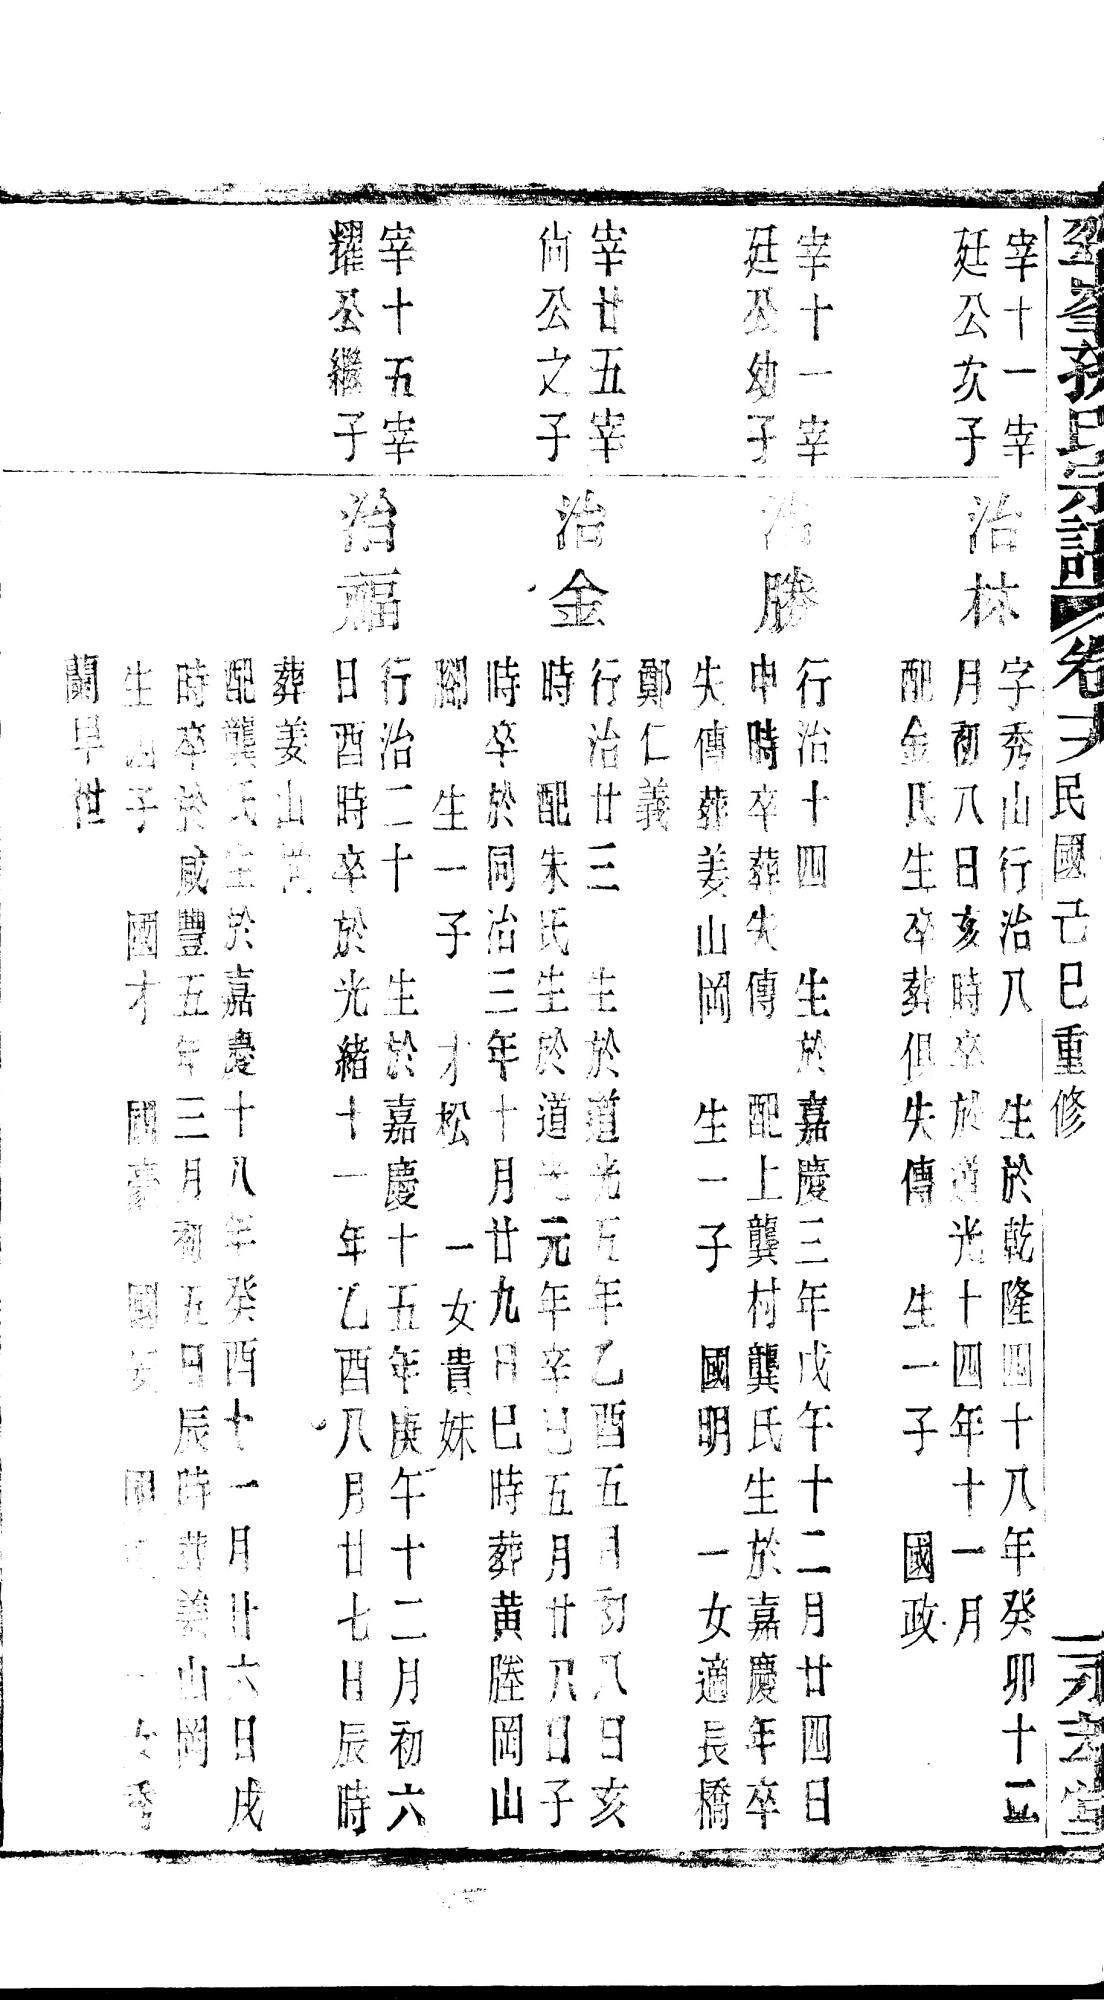 氏宗譜 卷 民國己巳重修 一 堂
宰十一宰
廷公次子
治林
字秀山行治八 生於乾隆四十八年癸卯十二
月初八日亥時卒於道光十四年十一月
配金氏生卒葬俱失傳 生一子 國政
宰十一宰
廷公幼子
治勝
行治十四 生於嘉慶三年戊午十二月廿四日
申時卒葬失傳 配上龔村龔氏生於嘉慶年卒
失傳葬姜山岡 生一子 國明 一女適長橋
鄭仁義
宰廿五宰
尚公之子
治金
行治廿三 生於道光五年乙酉五月初八日亥
時 配朱氏生於道光元年辛巳五月廿八日子
時卒於同治三年十月廿九日巳時葬黃塍岡山
腳 生一子 才松 一女貴妹
宰十五宰
耀公繼子
治福
行治二十 生於嘉慶十五年庚午十二月初六
日酉時卒於光緒十一年乙酉八月廿七日辰時
葬姜山岗
配龔氏生於嘉慶十八年癸酉十一月廿六日戌
時卒於咸豐五年三月初五日辰時葬姜山岡
生四子 國才 國豪 國安 國 一女秀
蘭早世